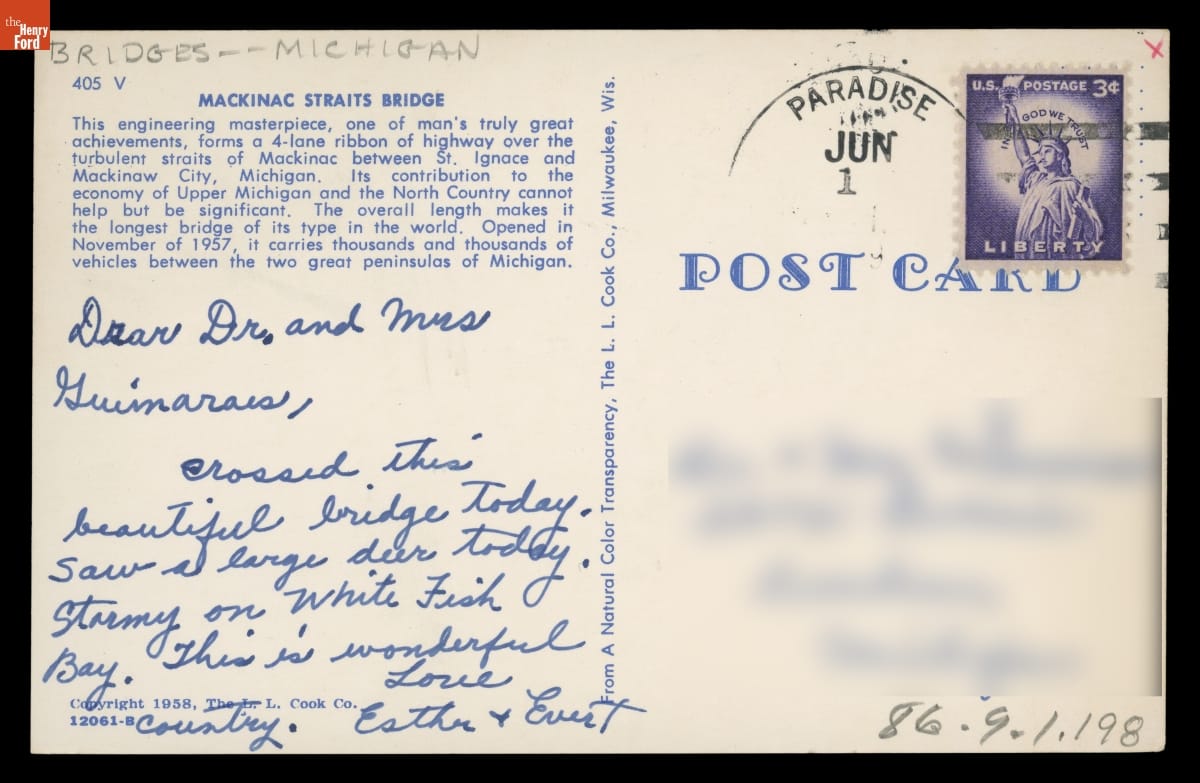 the
Henry
Ford
BRIDGES--MICHIGAN
405 V
MACKINAC STRAITS BRIDGE
This engineering masterpiece, one of man's truly great
achievements, forms a 4-lane ribbon of highway over the
turbulent straits of Mackinac between St. Ignace and
Mackinaw City, Michigan. Its contribution to the
economy of Upper Michigan and the North Country cannot
help but be significant. The overall length makes it
the longest bridge of its type in the world. Opened in
November of 1957, it carries thousands and thousands of
vehicles between the two great peninsulas of Michigan.
Dear Dr. and Mrs
Guimaraes,
crossed this
beautiful bridge today.
Saw a large deer today.
Stormy on White Fish
Bay. This is wonderful
country.
Love
Esther & Evert
Copyright 1958, The L. L. Cook Co.
12061-B
From A Natural Color Transparency, The L. L. Cook Co., Milwaukee, Wis.
PARADISE
JUN
1
X
U.S. POSTAGE 3¢
IN GOD WE TRUST
LIBERTY
POST CARD
86.9.1.198